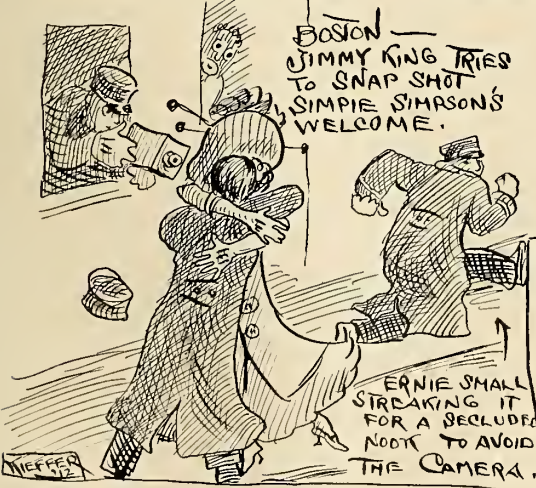 BOSTON —
JIMMY KING TRIES
TO SNAP SHOT
SIMPIE SIMPSON'S
WELCOME.
ERNIE SMALL
STREAKING IT
FOR A SECLUDED
NOOK TO AVOID
THE CAMERA.
KIEFFER
'12